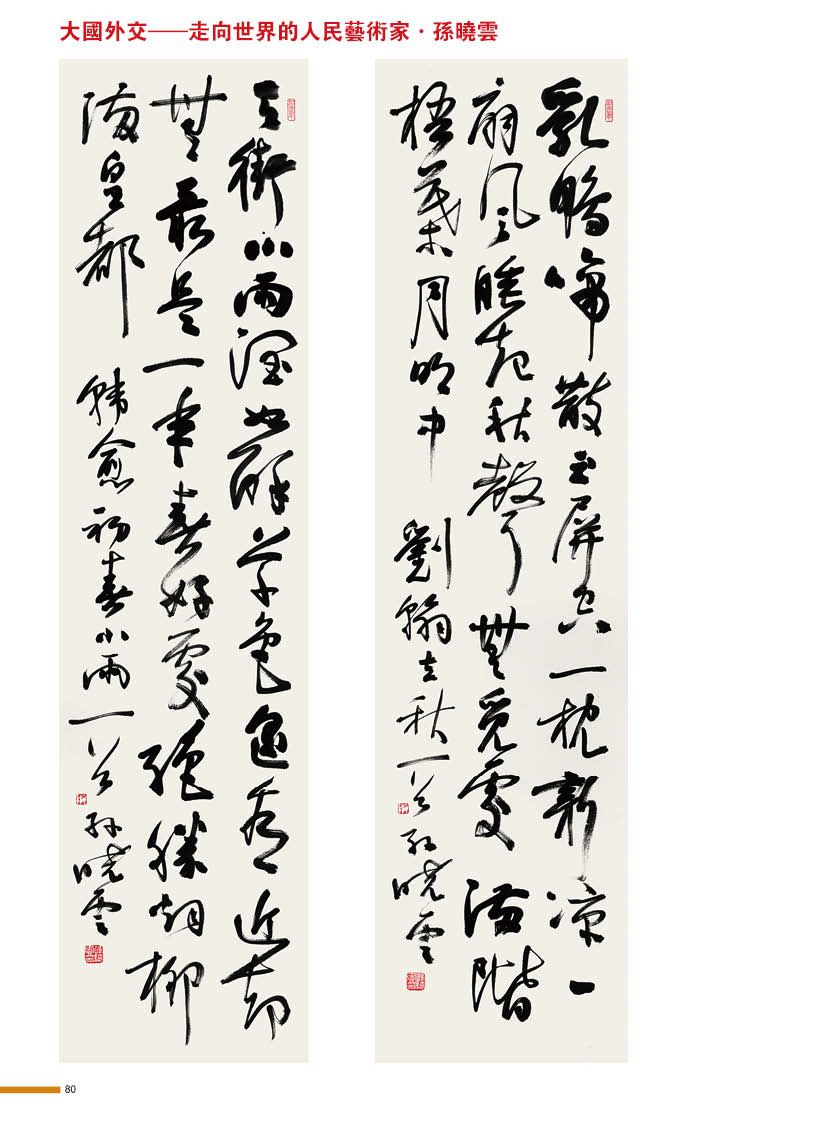 大國外交——走向世界的人民藝術家·孫曉雲
乳鴉啼散玉屏空一枕新涼一
扇風睡起秋聲無覓處滿階
梧葉月明中 劉翰立秋一首 孫曉雲
天街小雨潤如酥草色遙看近却
無最是一年春好處絕勝煙柳
滿皇都 韓愈初春小雨一首 孫曉雲
80